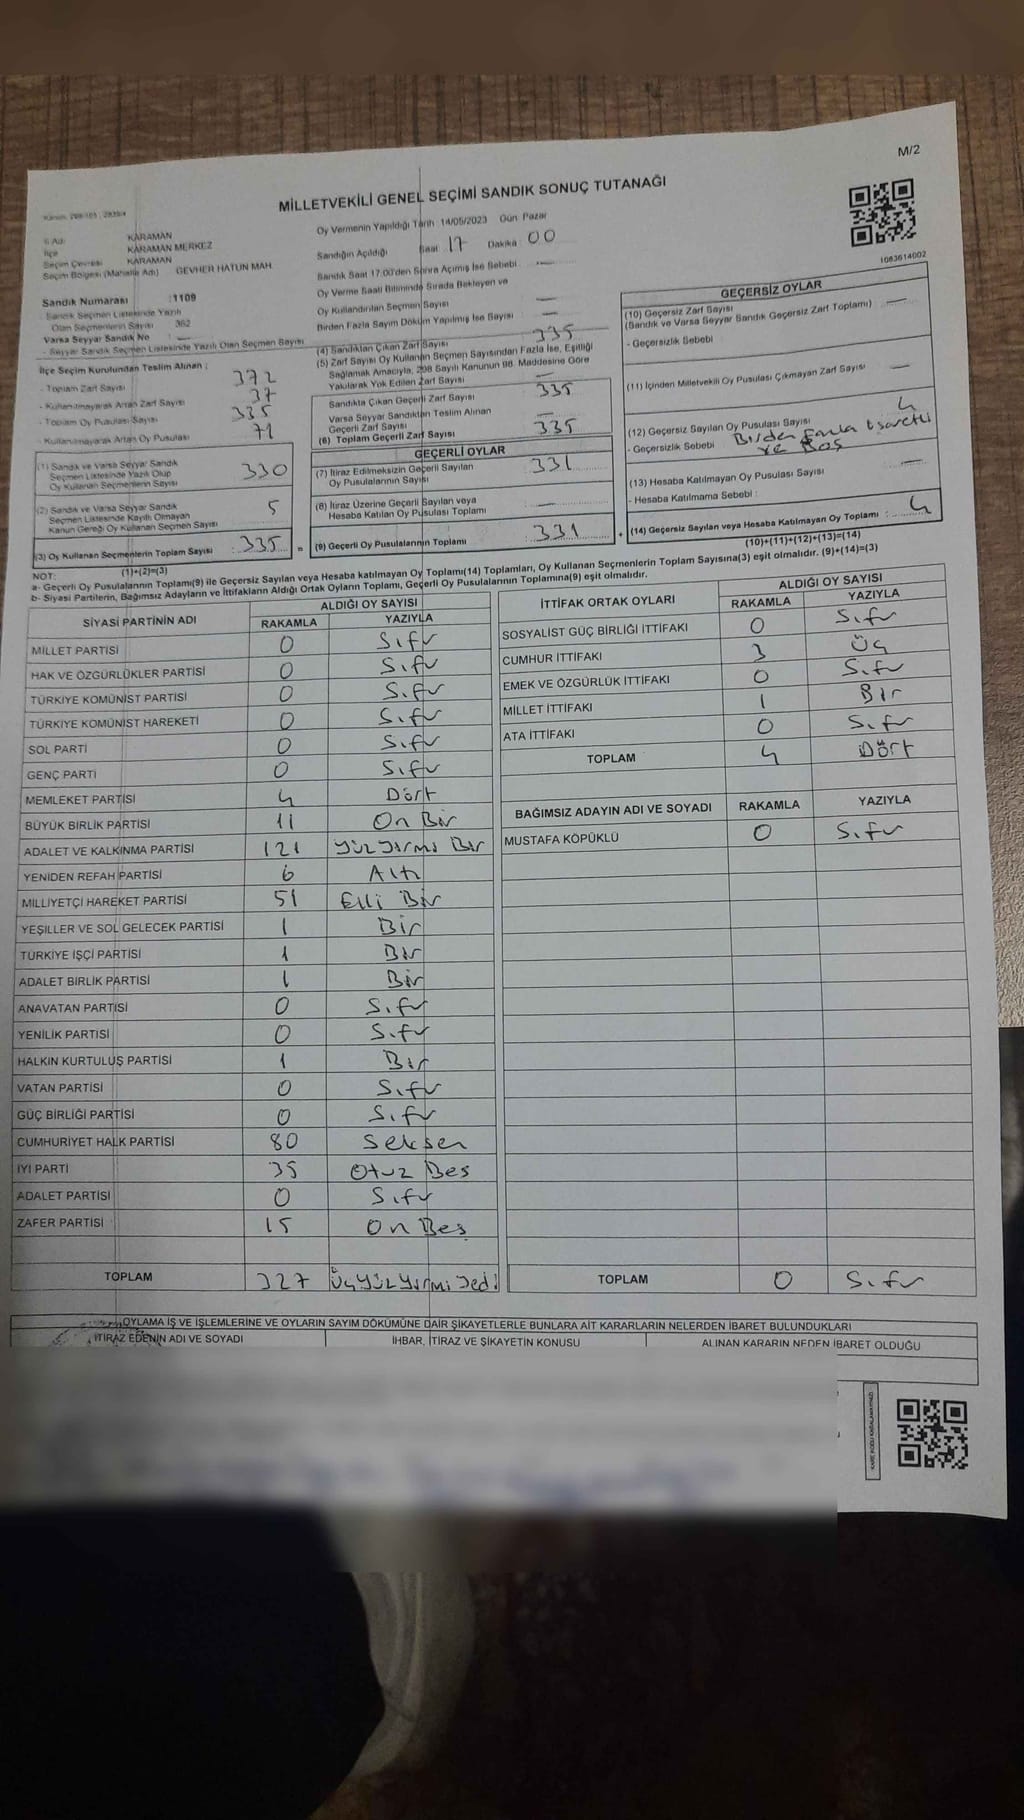 M/2
MİLLETVEKİLİ GENEL SEÇİMİ SANDIK SONUÇ TUTANAĞI
İl Adı KARAMAN
İlçe KARAMAN MERKEZ
Seçim Çevresi KARAMAN
Seçim Bölgesi (Mahalle Adı) GEVHER HATUN MAH.
Oy Vermenin Yapıldığı Tarih 14/05/2023 Gün Pazar
Sandığın Açıldığı Saat 17 Dakika 00
Sandık Saat 17.00'den Sonra Açımış İse Sebebi : —
Oy Verme Saati Bitiminde Sırada Bekleyen ve
Oy Kullandırılan Seçmen Sayısı —
Birden Fazla Sayım Döküm Yapılmış İse Sayısı —
1083614002
Sandık Numarası :1109
Sandık Seçmen Listesinde Yazılı
Olan Seçmenlerin Sayısı 362
Varsa Seyyar Sandık No : —
- Seyyar Sandık Seçmen Listesinde Yazılı Olan Seçmen Sayısı
İlçe Seçim Kurulundan Teslim Alınan :
- Toplam Zarf Sayısı 372
- Kullanılmayarak Artan Zarf Sayısı 37
- Toplam Oy Pusulası Sayısı 335
- Kullanılmayarak Artan Oy Pusulası 71
(1) Sandık ve Varsa Seyyar Sandık
Seçmen Listesinde Yazılı Olup
Oy Kullanan Seçmenlerin Sayısı 330
(2) Sandık ve Varsa Seyyar Sandık
Seçmen Listesinde Kayıtlı Olmayan
Kanun Gereği Oy Kullanan Seçmen Sayısı 5
(3) Oy Kullanan Seçmenlerin Toplam Sayısı : 335
(1)+(2)=(3)
(4) Sandıktan Çıkan Zarf Sayısı 335
(5) Zarf Sayısı Oy Kullanan Seçmen Sayısından Fazla İse, Eşitliği
Sağlamak Amacıyla, 298 Sayılı Kanunun 98. Maddesine Göre
Yakılarak Yok Edilen Zarf Sayısı —
Sandıkta Çıkan Geçerli Zarf Sayısı 335
Varsa Seyyar Sandıktan Teslim Alınan
Geçerli Zarf Sayısı —
(6) Toplam Geçerli Zarf Sayısı 335
GEÇERLİ OYLAR
(7) İtiraz Edilmeksizin Geçerli Sayılan
Oy Pusulalarının Sayısı 331
(8) İtiraz Üzerine Geçerli Sayılan veya
Hesaba Katılan Oy Pusulası Toplamı —
(9) Geçerli Oy Pusulalarının Toplamı : 331
GEÇERSİZ OYLAR
(10) Geçersiz Zarf Sayısı —
(Sandık ve Varsa Seyyar Sandık Geçersiz Zarf Toplamı)
- Geçersizlik Sebebi
(11) İçinden Milletvekili Oy Pusulası Çıkmayan Zarf Sayısı —
(12) Geçersiz Sayılan Oy Pusulası Sayısı 4
- Geçersizlik Sebebi Birden Fazla İşaretli
ve Boş
(13) Hesaba Katılmayan Oy Pusulası Sayısı —
- Hesaba Katılmama Sebebi :
(14) Geçersiz Sayılan veya Hesaba Katılmayan Oy Toplamı : 4
(10)+(11)+(12)+(13)=(14)
NOT:
a- Geçerli Oy Pusulalarının Toplamı(9) ile Geçersiz Sayılan veya Hesaba katılmayan Oy Toplamı(14) Toplamları, Oy Kullanan Seçmenlerin Toplam Sayısına(3) eşit olmalıdır. (9)+(14)=(3)
b- Siyasi Partilerin, Bağımsız Adayların ve İttifakların Aldığı Ortak Oyların Toplamı, Geçerli Oy Pusulalarının Toplamına(9) eşit olmalıdır.
SİYASİ PARTİNİN ADI ALDIĞI OY SAYISI
RAKAMLA YAZIYLA
MİLLET PARTİSİ 0 Sıfır
HAK VE ÖZGÜRLÜKLER PARTİSİ 0 Sıfır
TÜRKİYE KOMÜNİST PARTİSİ 0 Sıfır
TÜRKİYE KOMÜNİST HAREKETİ 0 Sıfır
SOL PARTİ 0 Sıfır
GENÇ PARTİ 0 Sıfır
MEMLEKET PARTİSİ 4 Dört
BÜYÜK BİRLİK PARTİSİ 11 On Bir
ADALET VE KALKINMA PARTİSİ 121 Yüz Yirmi Bir
YENİDEN REFAH PARTİSİ 6 Altı
MİLLİYETÇİ HAREKET PARTİSİ 51 Elli Bir
YEŞİLLER VE SOL GELECEK PARTİSİ 1 Bir
TÜRKİYE İŞÇİ PARTİSİ 1 Bir
ADALET BİRLİK PARTİSİ 1 Bir
ANAVATAN PARTİSİ 0 Sıfır
YENİLİK PARTİSİ 0 Sıfır
HALKIN KURTULUŞ PARTİSİ 1 Bir
VATAN PARTİSİ 0 Sıfır
GÜÇ BİRLİĞİ PARTİSİ 0 Sıfır
CUMHURİYET HALK PARTİSİ 80 Seksen
İYİ PARTİ 35 Otuz Beş
ADALET PARTİSİ 0 Sıfır
ZAFER PARTİSİ 15 On Beş
TOPLAM 327 Üç Yüz Yirmi Yedi
İTTİFAK ORTAK OYLARI ALDIĞI OY SAYISI
RAKAMLA YAZIYLA
SOSYALİST GÜÇ BİRLİĞİ İTTİFAKI 0 Sıfır
CUMHUR İTTİFAKI 3 Üç
EMEK VE ÖZGÜRLÜK İTTİFAKI 0 Sıfır
MİLLET İTTİFAKI 1 Bir
ATA İTTİFAKI 0 Sıfır
TOPLAM 4 Dört
BAĞIMSIZ ADAYIN ADI VE SOYADI RAKAMLA YAZIYLA
MUSTAFA KÖPÜKLÜ 0 Sıfır
TOPLAM 0 Sıfır
OYLAMA İŞ VE İŞLEMLERİNE VE OYLARIN SAYIM DÖKÜMÜNE DAİR ŞİKAYETLERLE BUNLARA AİT KARARLARIN NELERDEN İBARET BULUNDUKLARI
İTİRAZ EDENİN ADI VE SOYADI İHBAR, İTİRAZ VE ŞİKAYETİN KONUSU ALINAN KARARIN NEDEN İBARET OLDUĞU